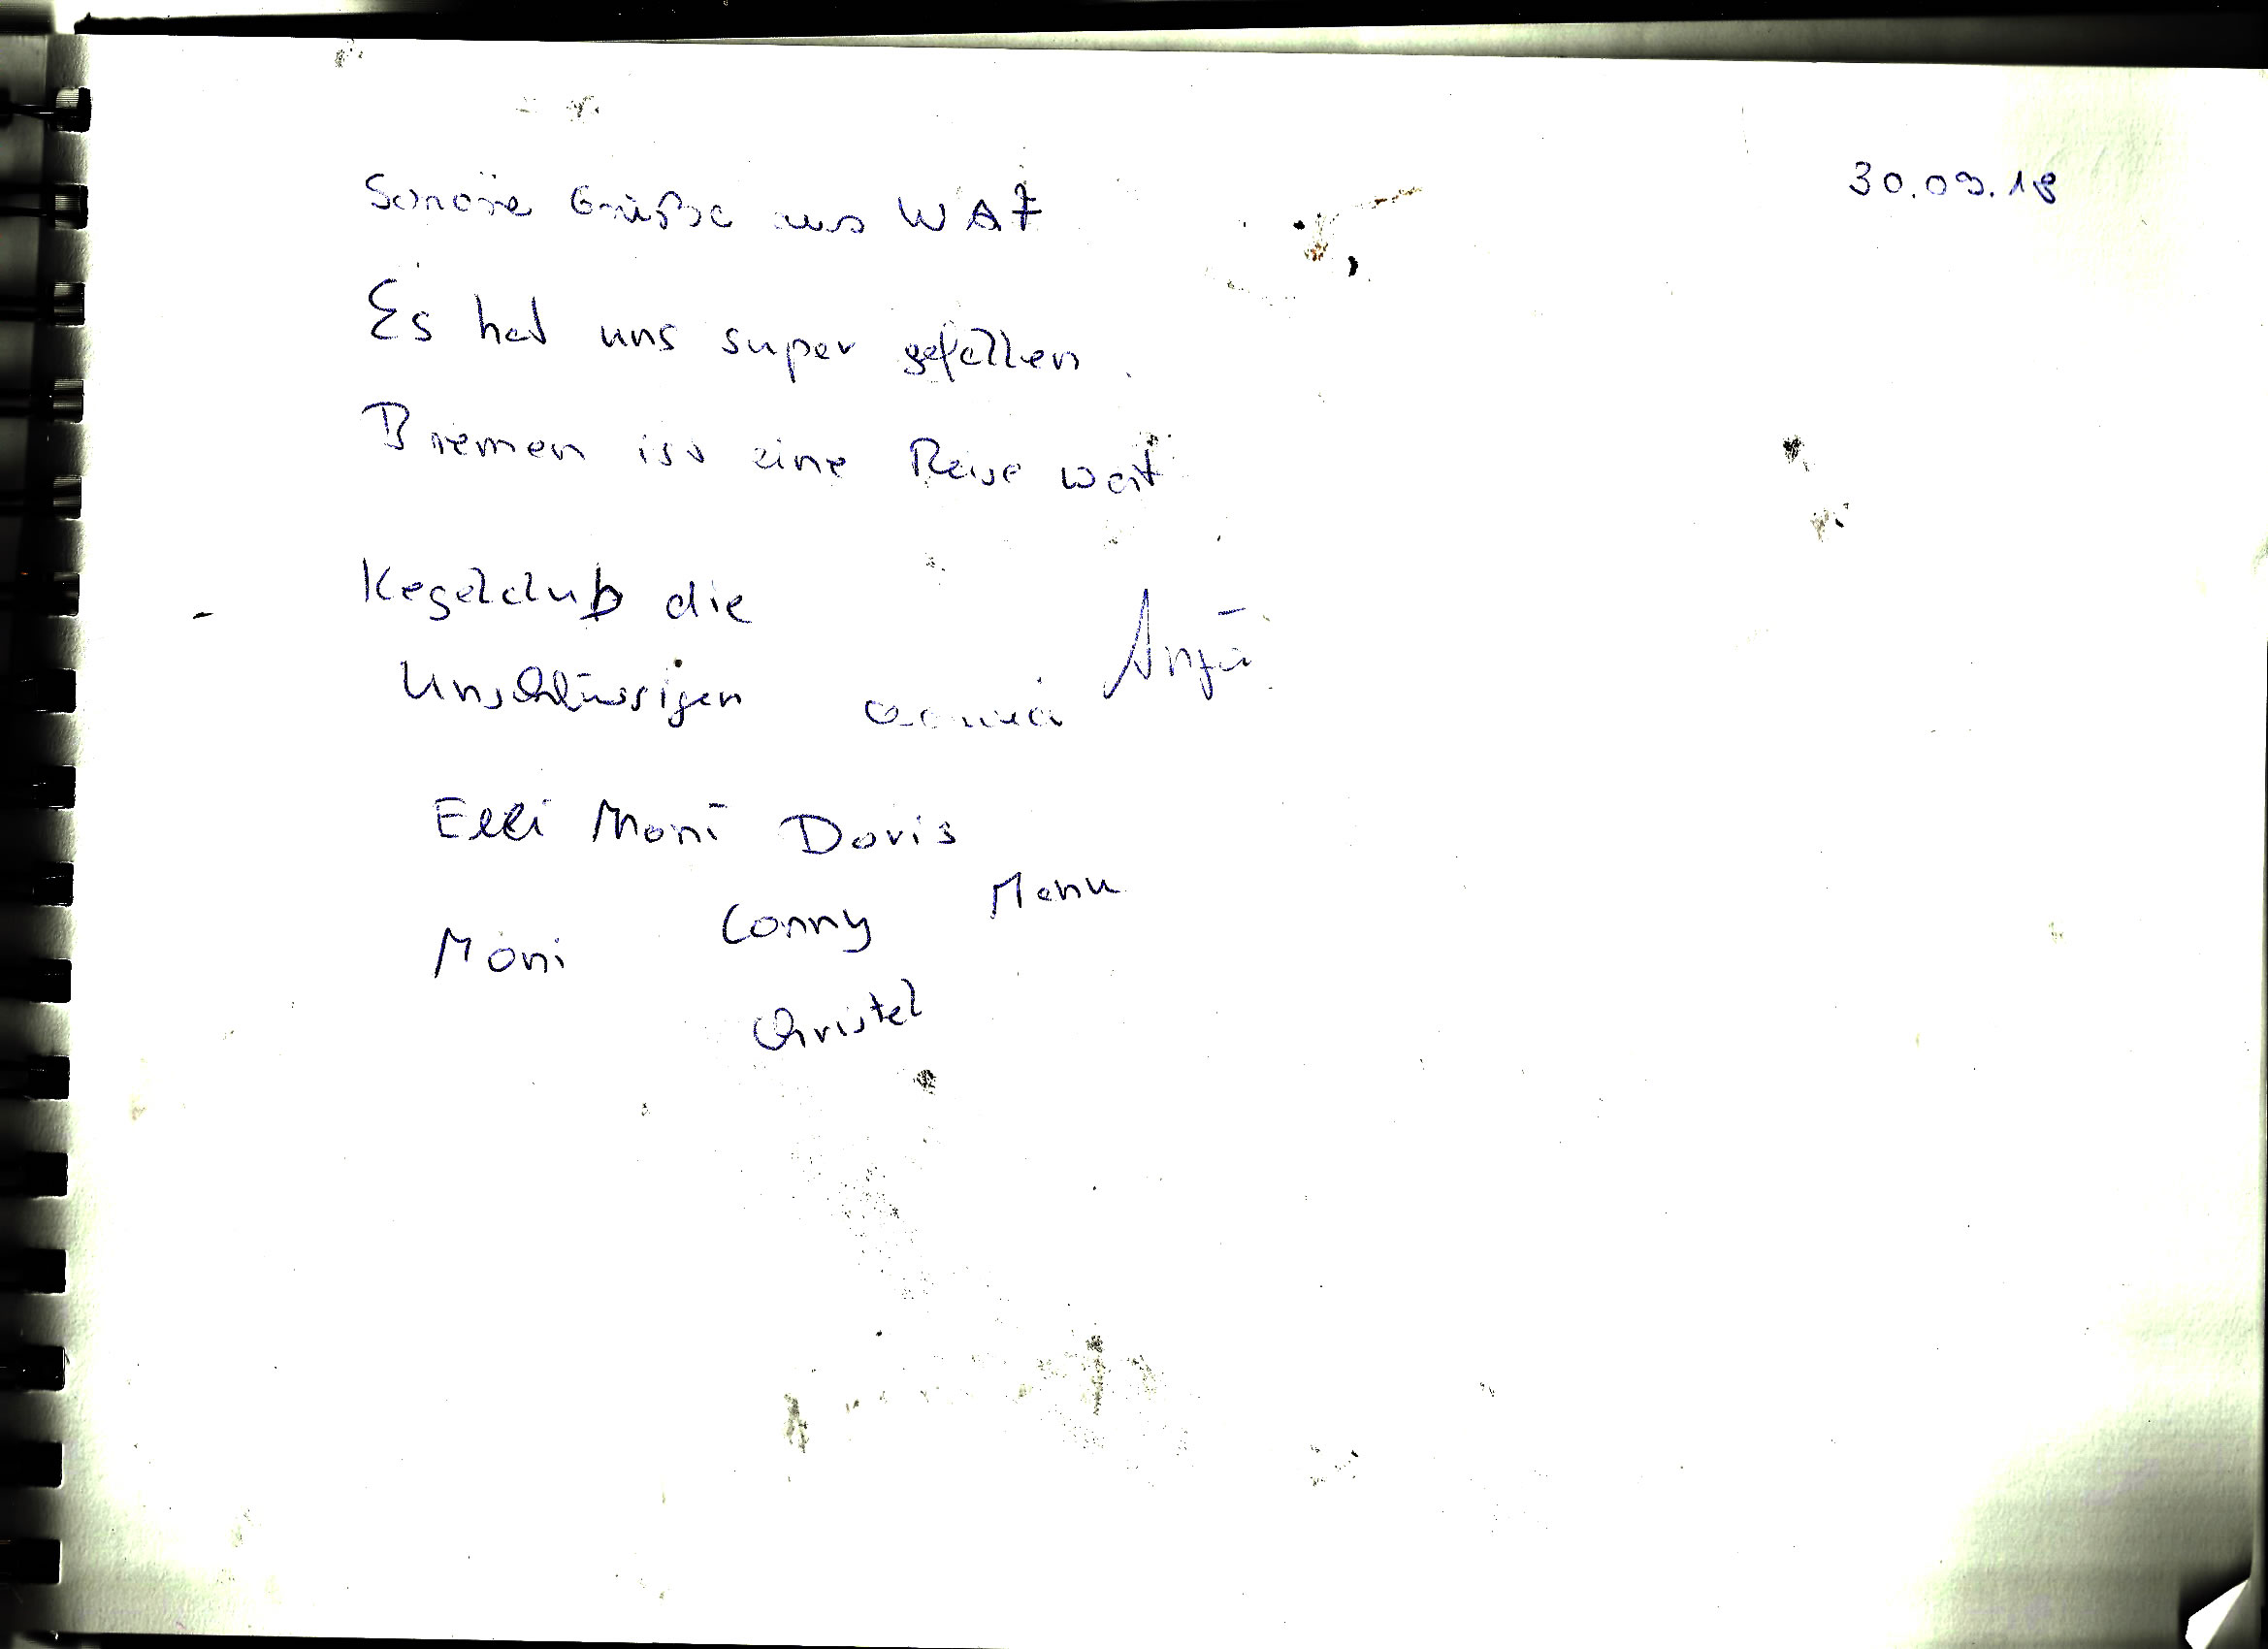 30.09.18
Schöne Grüße aus WAF
Es hat uns super gefallen.
Bremen ist eine Reise wert
Kegelclub die
Unschlüssigen
Anja
Elli Moni Doris
Moni Conny Manu
Christel